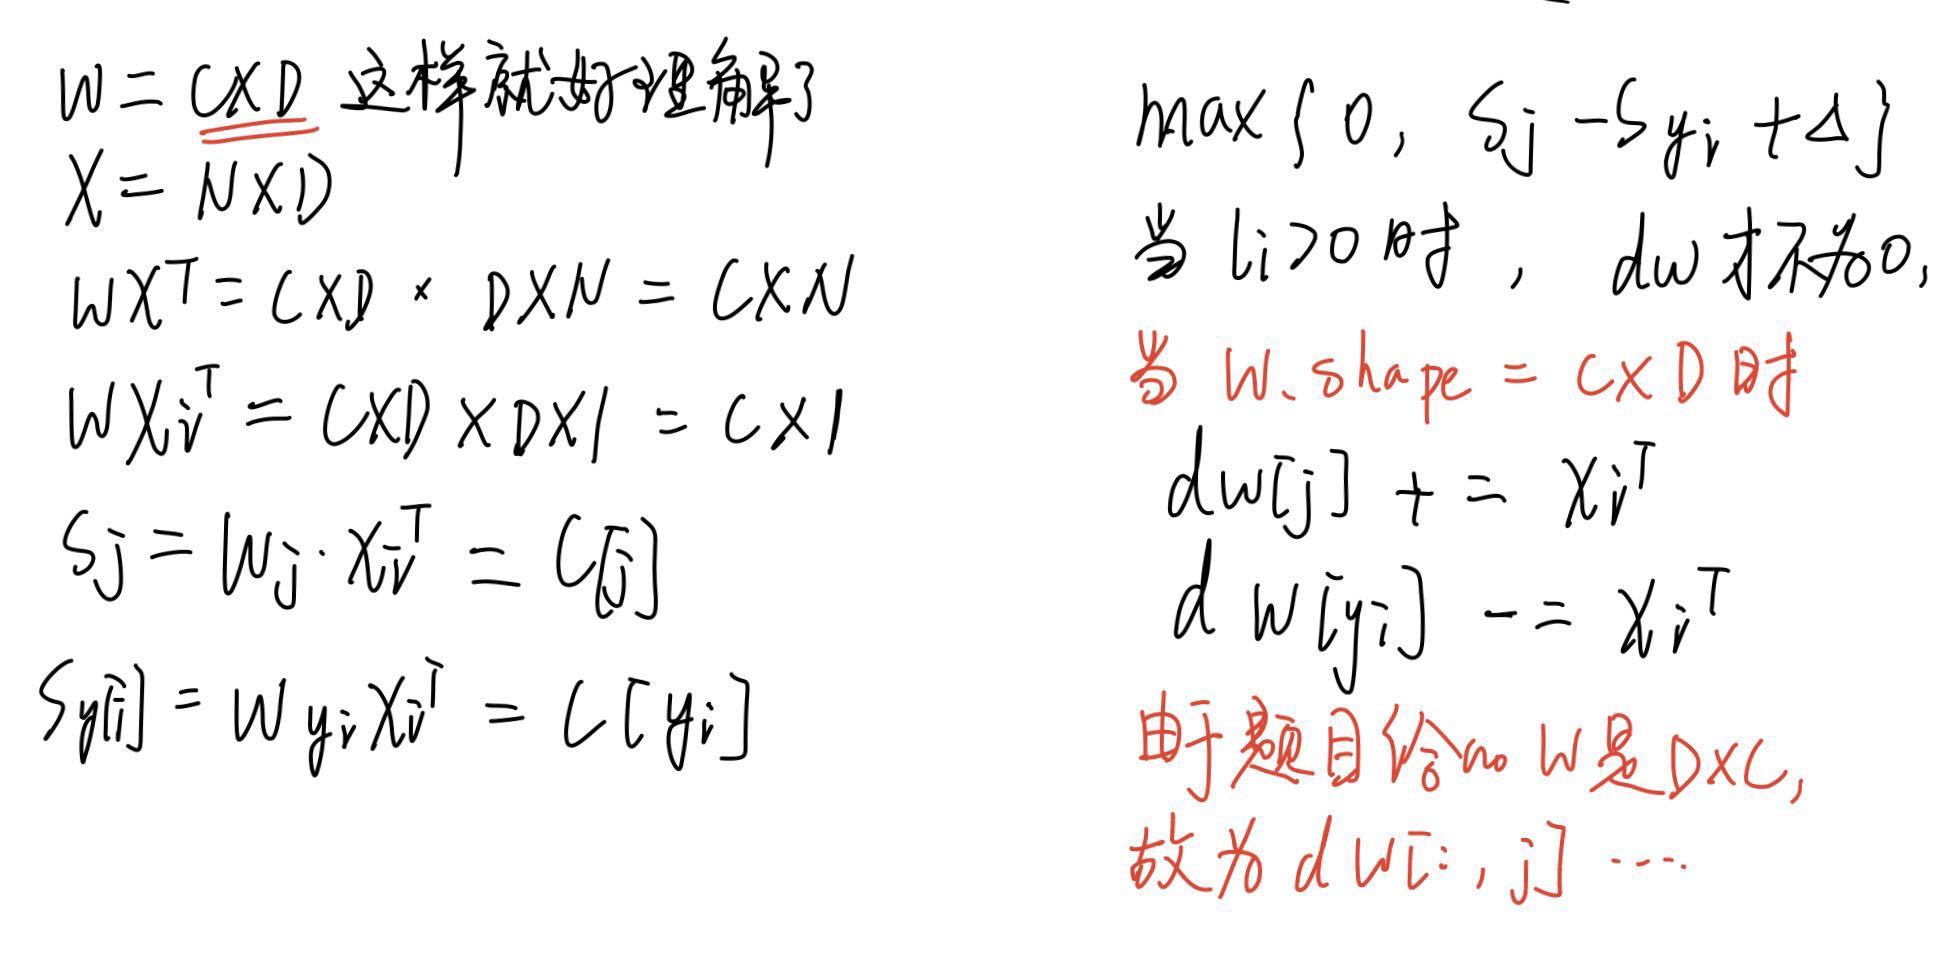 W = C×D 这样就好理解了
X = N×D
WX^T = C×D × D×N = C×N
WXi^T = C×D × D×1 = C×1
Sj = Wj · Xi^T = C[j]
Sy[i] = Wyi Xi^T = C[yi]
max{0, Sj - Syi + Δ}
当 Li>0 时, dw 才不为0,
当 W.shape = C×D 时
dw[j] += Xi^T
dW[yi] -= Xi^T
由于题目给的 W是D×C,
故为 dW[:,j] ....